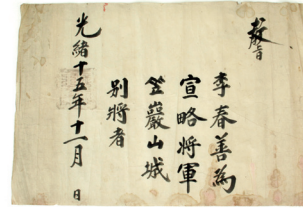 教旨
李春善為
宣略將軍
笠巖山城
別將者
光緒十五年十一月 日